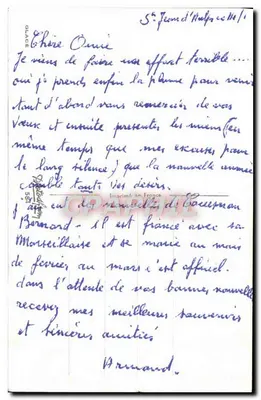 St Jean d'Aulps le 14/1
Chère Amie
Je viens de faire un effort terrible....
oui je prends enfin la plume pour venir
tout d'abord vous remercier de vos
vœux et ensuite présenter les miens (en
même temps que mes excuses pour
le long silence) que la nouvelle année
comble tous vos désirs.
Bernard - il est fiancé avec sa
Marseillaise et se marie au mois
de février ou mars c'est officiel.
dans l'attente de vos bonnes nouvelles
recevez mes meilleurs souvenirs
et sincères amitiés
Armand.